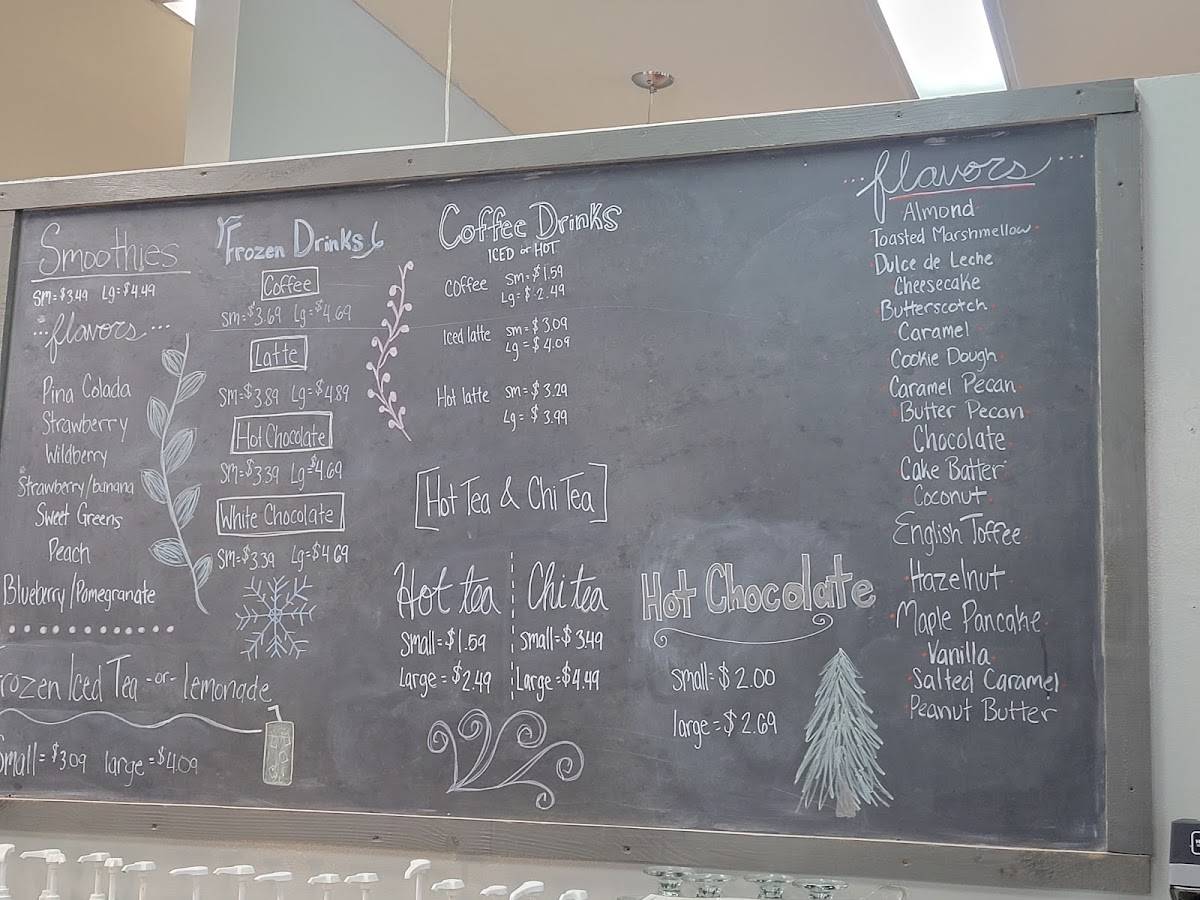 Smoothies
Sm=$3.49 Lg=$4.49
...flavors...
Pina Colada
Strawberry
Wildberry
Strawberry/banana
Sweet Greens
Peach
Blueberry/Pomegranate
Frozen Iced Tea -or- Lemonade
Small=$3.09 large=$4.09
Frozen Drinks
Coffee
Sm=$3.69 Lg=$4.69
Latte
Sm=$3.89 Lg=$4.89
Hot Chocolate
Sm=$3.39 Lg=$4.69
White Chocolate
Sm=$3.39 Lg=$4.69
Coffee Drinks
ICED or HOT
Coffee Sm=$1.59
Lg=$2.49
Iced latte Sm=$3.09
Lg=$4.09
Hot latte Sm=$3.29
Lg=$3.99
[Hot Tea & Chi Tea]
Hot tea
Small=$1.59
Large=$2.49
Chi tea
Small=$3.49
Large=$4.49
Hot Chocolate
Small=$2.00
large=$2.69
...flavors...
Almond
Toasted Marshmellow
Dulce de Leche
Cheesecake
Butterscotch
Caramel
Cookie Dough
Caramel Pecan
Butter Pecan
Chocolate
Cake Batter
Coconut
English Toffee
Hazelnut
Maple Pancake
Vanilla
Salted Caramel
Peanut Butter